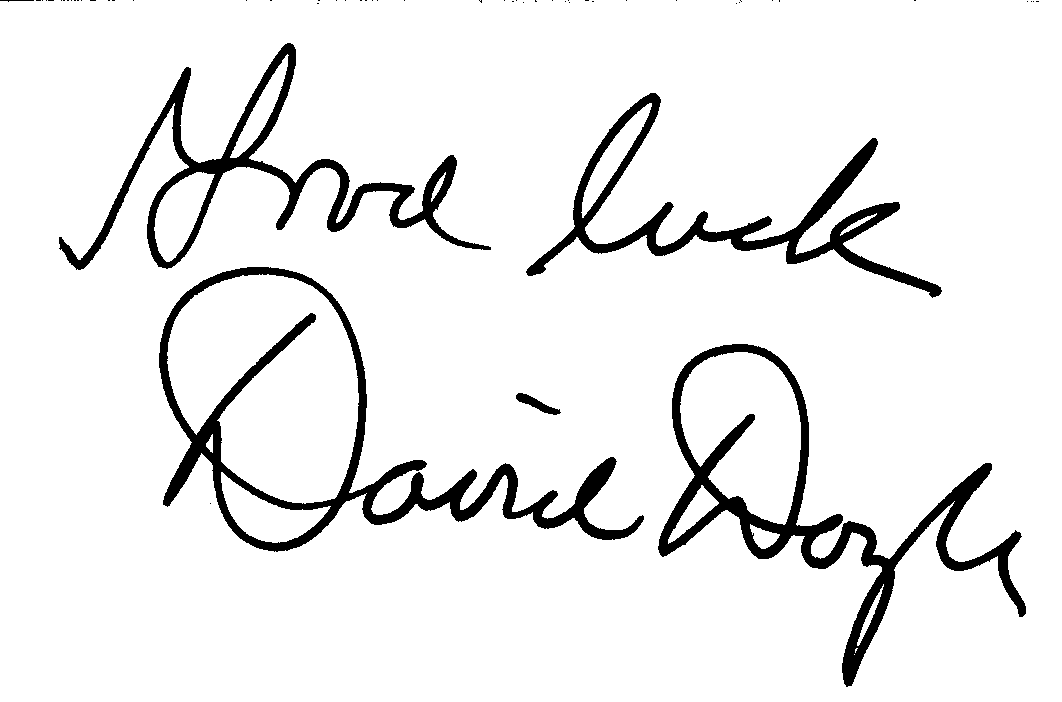 Good luck
David Doyle